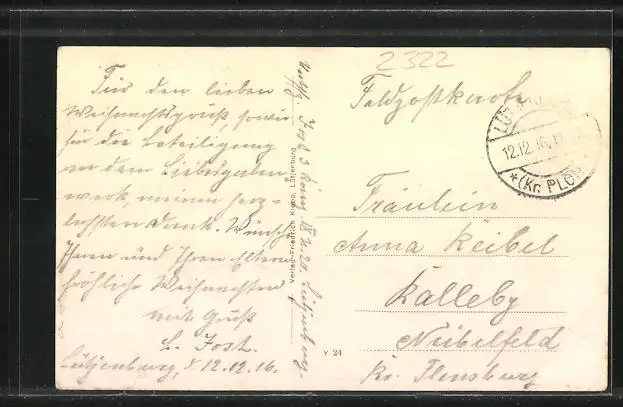 2322
Für den lieben
Weihnachtsgruß, sowie
für die Beteiligung
an dem Liebesgaben
werk, meinen herz-
lichsten Dank. Wünsche
Ihnen und Ihren Eltern
fröhliche Weihnachten
mit Gruß
L. Jost.
Lütjenburg, d 12.12.16.
Jost 3 Komp. Lütjenburg.
Verlag Friedrich Kropp, Lütjenburg
Y 24
Feldpostkarte
12.12.16.12
*(Kr. PLÖN
Fräulein
Anna Keibel
Källeby
Nübelfeld
Kr. Flensburg